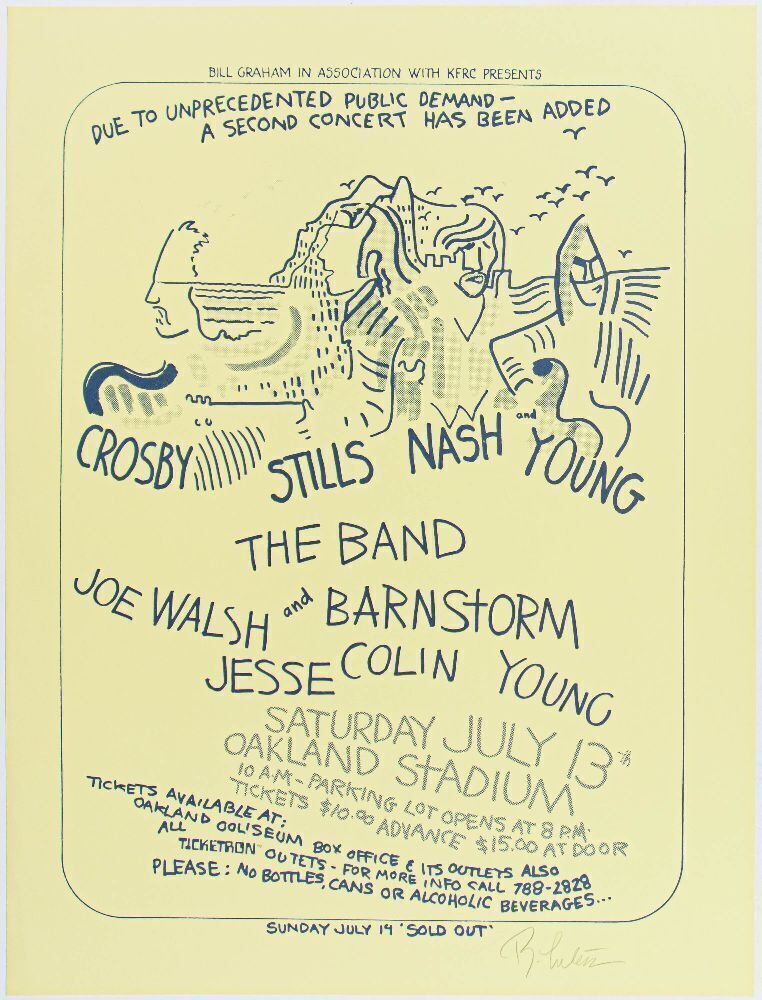 BILL GRAHAM IN ASSOCIATION WITH KFRC PRESENTS
DUE TO UNPRECEDENTED PUBLIC DEMAND —
A SECOND CONCERT HAS BEEN ADDED
CROSBY STILLS NASH and YOUNG
THE BAND
JOE WALSH and BARNSTORM
JESSE COLIN YOUNG
SATURDAY JULY 13th
OAKLAND STADIUM
10 A.M. - PARKING LOT OPENS AT 8 P.M.
TICKETS $10.00 ADVANCE $15.00 AT DOOR
TICKETS AVAILABLE AT:
OAKLAND COLISEUM BOX OFFICE & ITS OUTLETS ALSO
ALL TICKETRON OUTETS - FOR MORE INFO CALL 788-2828
PLEASE: NO BOTTLES, CANS OR ALCOHOLIC BEVERAGES...
SUNDAY JULY 14 'SOLD OUT'